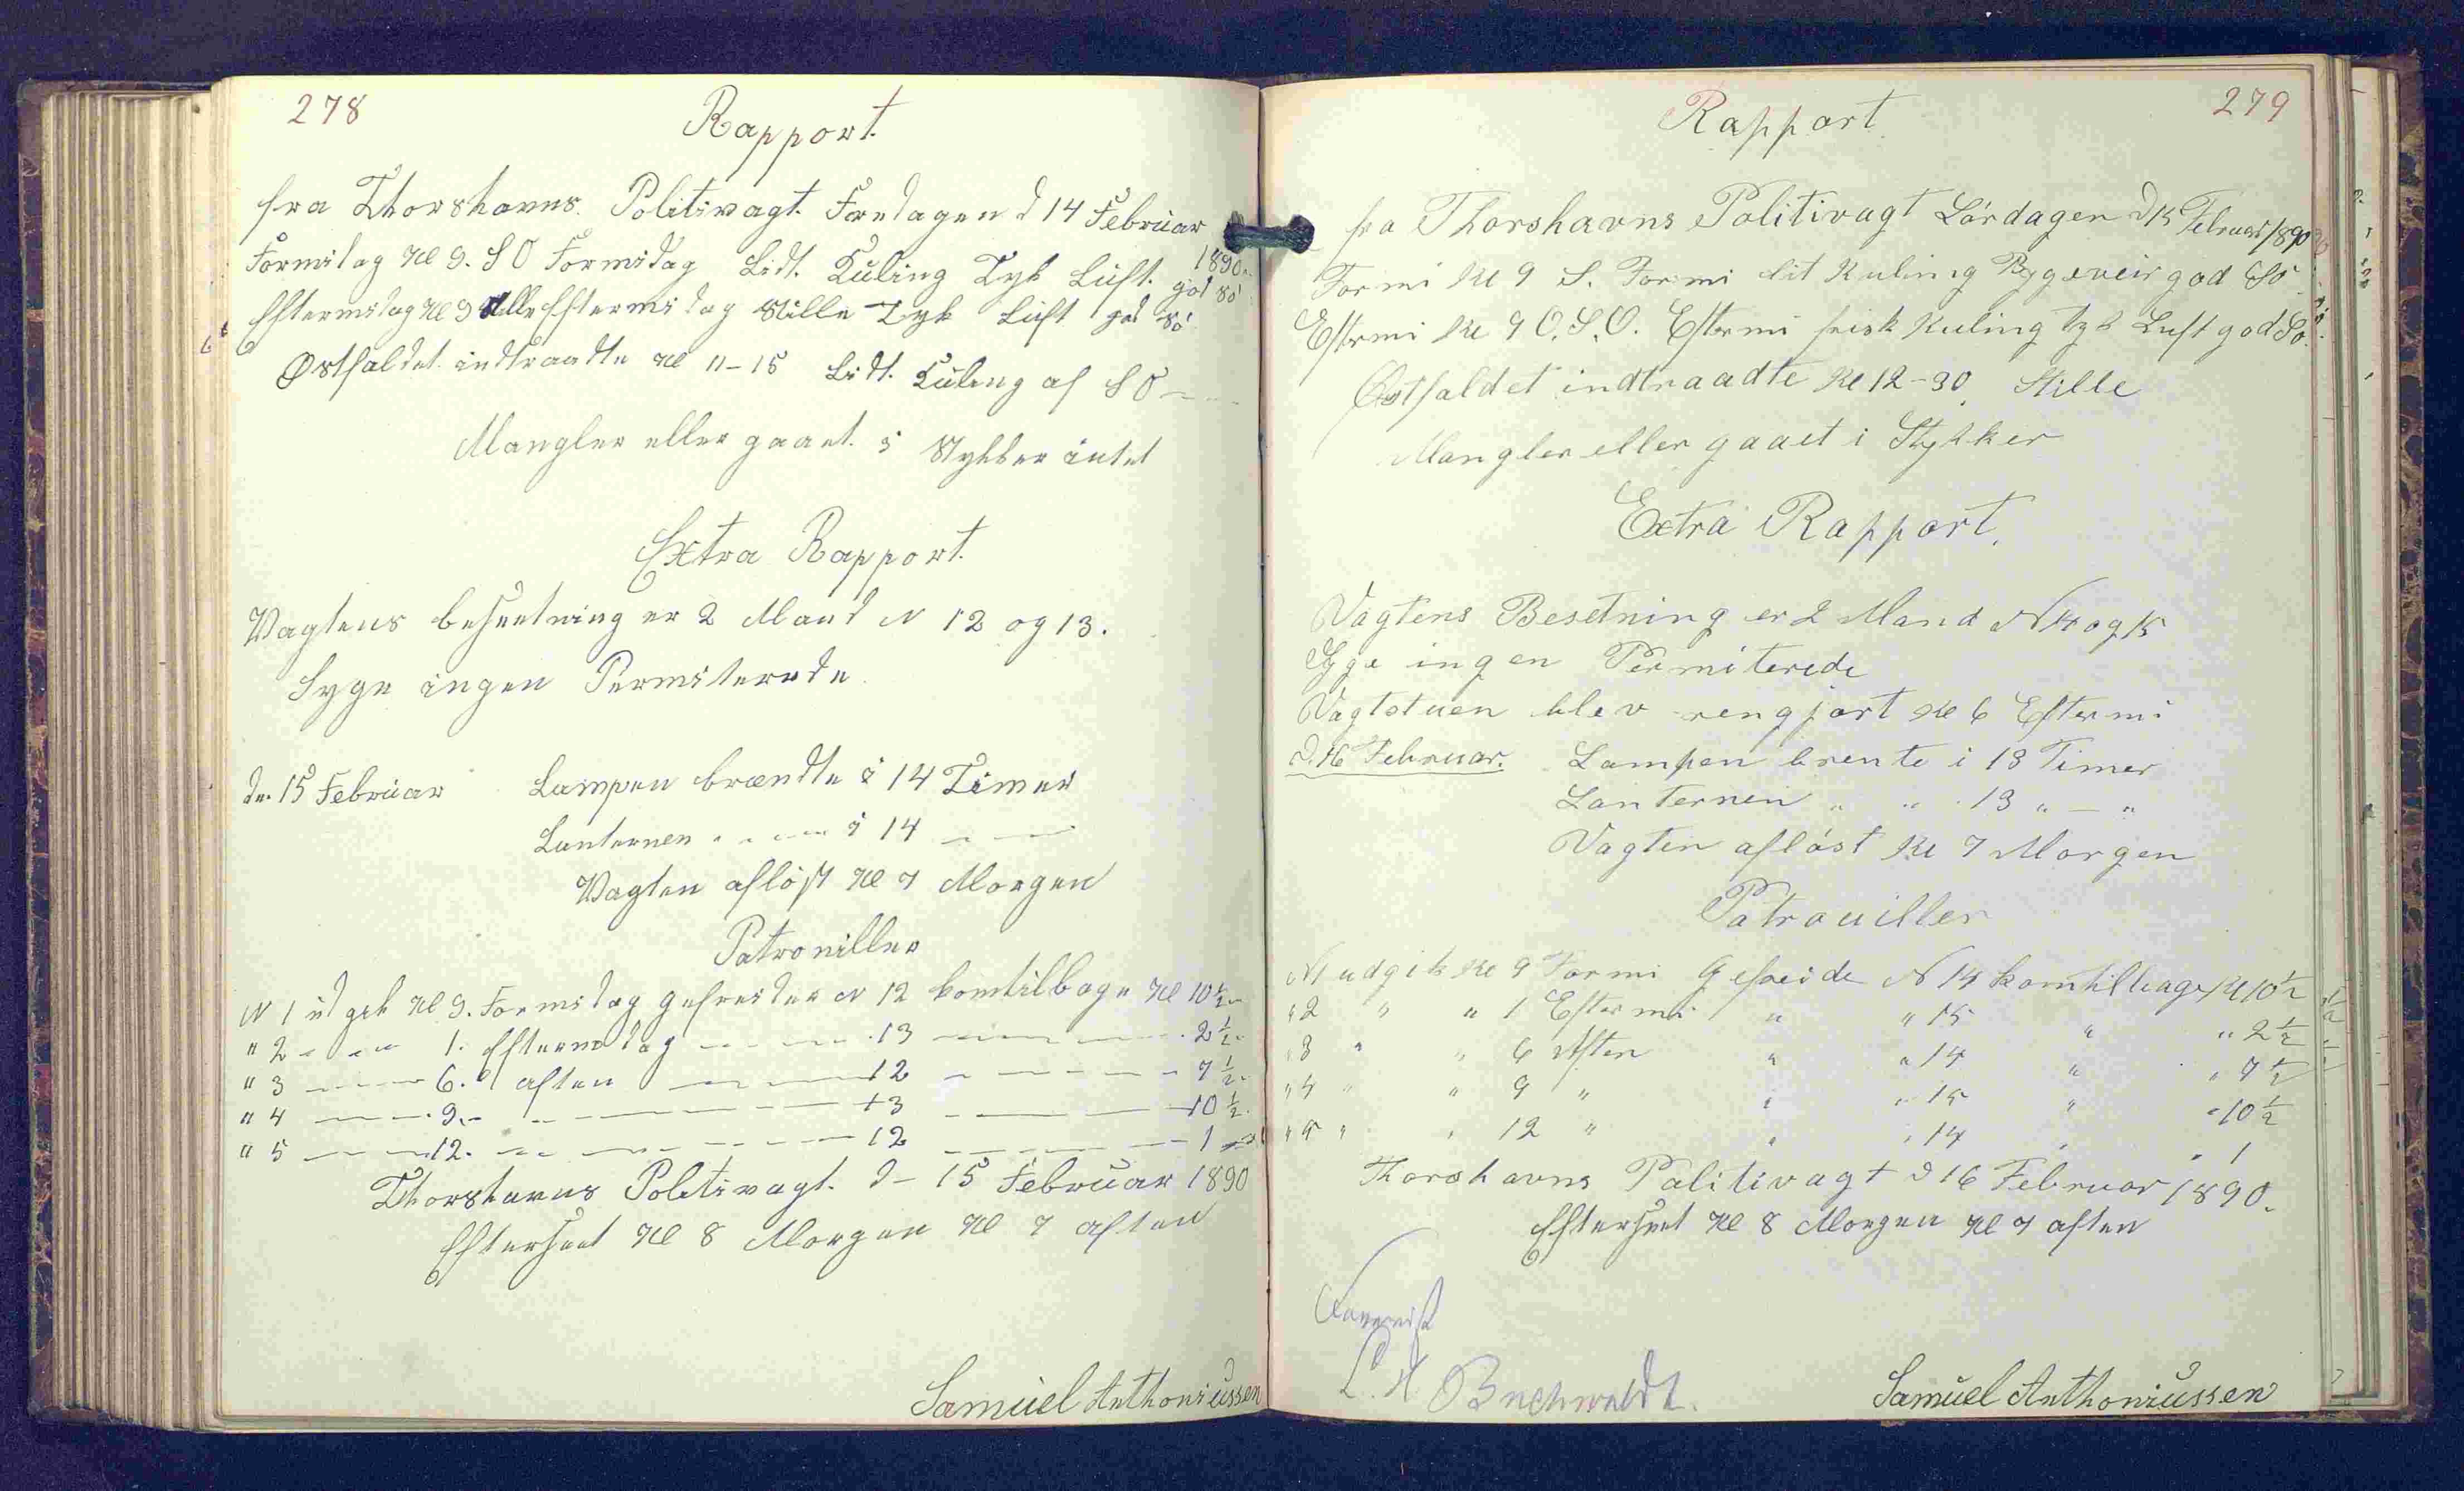 278
Rapport.
fra Thorshavns Politivagt. Fredagen d 14 Februar
1890.
Formidag Kl 9. SO Formidag Lidt. Kuling Tyk Luft. god Sö
Eftermidag Kl 9 Stille Eftermidag Stille Tyk Luft god Sö
Østfaldet indtraadte Kl 11-15 Lidt. Kuling af SO
Mangler eller gaaet. i Stykker intet
Extra Rapport.
Vagtens besætning er 2 Mand N 12 og 13.
Syge ingen Permiterede
den 15 Februar Lampen brændte i 14 Timer
Lanternen " " — i 14 — —
Vagten afløst Kl 7 Morgen
Patrouiller
N 1 ud gik Kl 9. Formidag Gefreider N 12 komtilbage Kl 10½
" 2 — — 1. Eftermidag — — 13 — — 2½
" 3 — — 6. aften — — 12 — — 7½
" 4 — — 9. — — — 13 — — 10½
" 5 — — 12. — — — 12 — — 1
Thorshavns Politivagt. d- 15 Februar 1890
Efterseet Kl 8 Morgen Kl 7 aften
Samuel Anthoniussen
279
Rapport
fra Thorshavns Politivagt Lördagen d 15 Februar 1890
Formi Kl 9 S. Formi lit Kuling Bygeveir god Sö
Eftermi Kl 9 O.S.O. Eftermi frisk Kuling tyk Luft god Sö.
Østfaldet indtraadte Kl 12-30. Stille
Mangler eller gaaet i Stykker
Extra Rapport.
Vagtens Besetning er 2 Mand N 14 og 15
Syge ingen Permiterede
Vagtstuen blev rengjort Kl 6 Eftermi
d. 16 Februar. Lampen brente i 13 Timer
Lanternen " " 13 " — "
Vagten afløst Kl 7 Morgen
Patrouiller
N 1 udgik Kl 9 Formi Gefreide N 14 komtilbage Kl 10½
" 2 " " 1 Eftermi " " 15 " " 2½
" 3 " " 6 Aften " " 14 " " 7½
" 4 " " 9 " " " 15 " " 10½
" 5 " " 12 " " " 14 " " 1
Thorshavns Politivagt d 16 Februar 1890.
Efterseet Kl 8 Morgen Kl 7 aften
L. A. Buchwaldt.
Samuel Anthoniussen